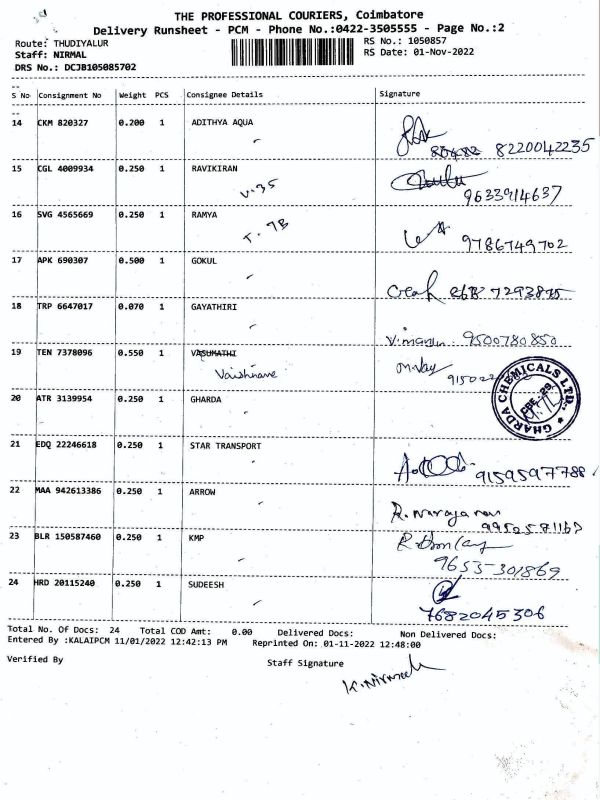 THE PROFESSIONAL COURIERS, Coimbatore
Delivery Runsheet - PCM - Phone No.:0422-3505555 - Page No.:2
Route: THUDIYALUR
RS No.: 1050857
Staff: NIRMAL
RS Date: 01-Nov-2022
DRS No.: DCJB105085702
S No Consignment No Weight PCS Consignee Details Signature
14 CKM 820327 0.200 1 ADITHYA AQUA
8220042235
15 CGL 4009934 0.250 1 RAVIKIRAN
V-35
9633914637
16 SVG 4565669 0.250 1 RAMYA
T-7B
9786749702
17 APK 690307 0.500 1 GOKUL
7293875
18 TRP 6647017 0.070 1 GAYATHIRI
9500780850
19 TEN 7378096 0.550 1 VASUMATHI
Vaishnave
20 ATR 3139954 0.250 1 GHARDA
GHARDA CHEMICALS LTD.,
21 EDQ 22246618 0.250 1 STAR TRANSPORT
9159597788
22 MAA 942613386 0.250 1 ARROW
R. Narayanan
23 BLR 150587460 0.250 1 KMP
9653-301869
24 HRD 20115240 0.250 1 SUDEESH
7682045306
Total No. Of Docs: 24 Total COD Amt: 0.00 Delivered Docs: Non Delivered Docs:
Entered By :KALAIPCM 11/01/2022 12:42:13 PM Reprinted On: 01-11-2022 12:48:00
Verified By Staff Signature
K. Nirmal